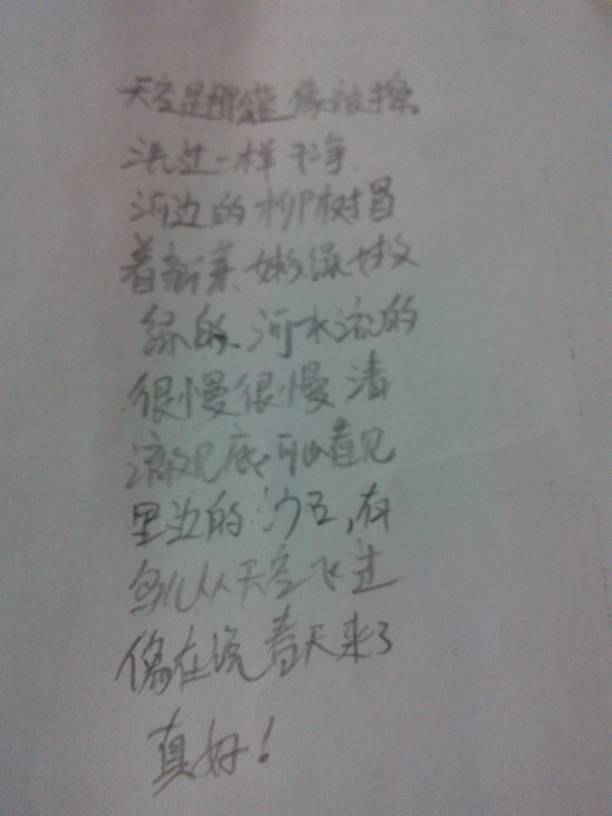 天空是那蓝像被擦
洗过一样干净.
河边的柳树冒
着新芽、嫩绿嫩
绿的、河水流的
很慢很慢清
澈见底.可以看见
里边的沙石,有
鸟儿从天空飞过
像在说春天来了
真好!